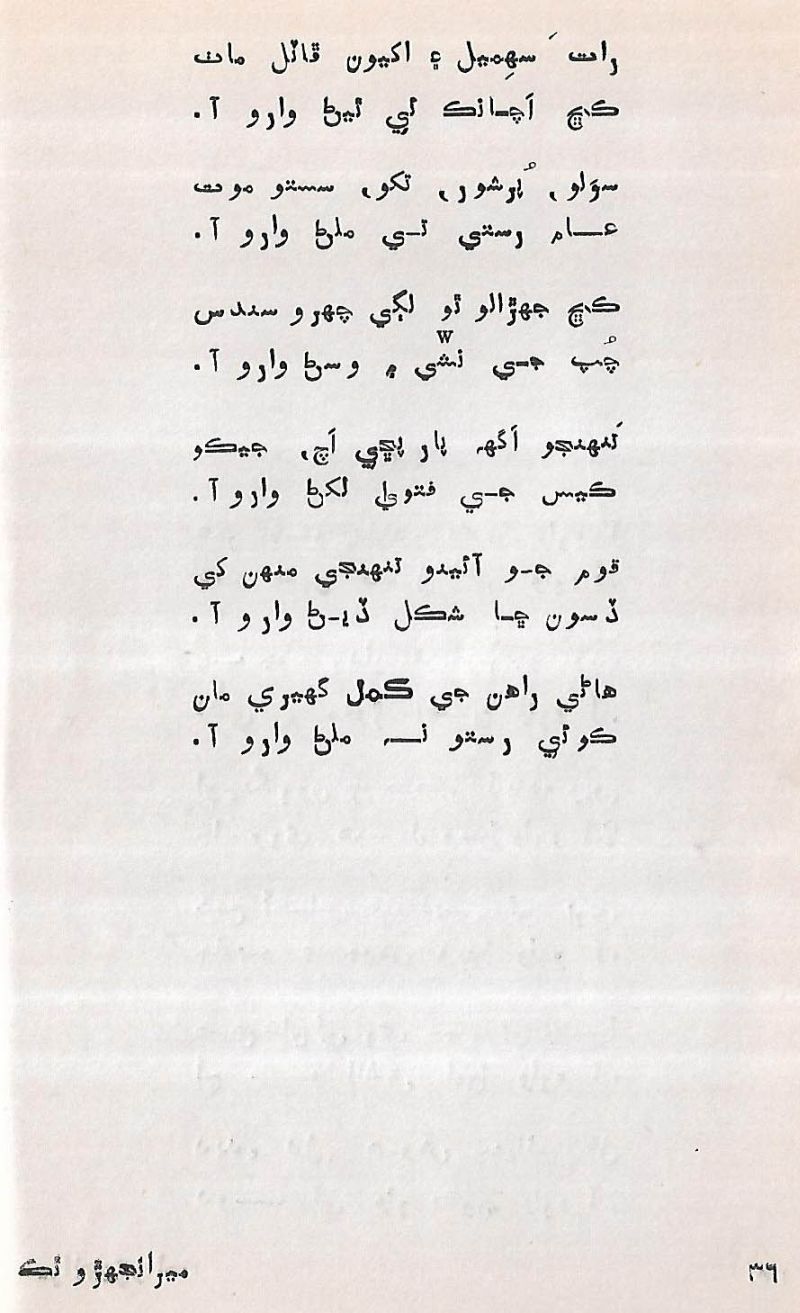 رات سهميل ۽ اکيون ڦاٽل مات
ڪجهہ اَچانڪ ئي ٿيڻ وارو آ.
سوَلو، پُرشور، تکو، سستو موت
عام رستي تي ملڻ وارو آ.
ڪجهہ جهڙالو ٿو لڳي چهرو سندس
چُپ جي نشي ۾ وسڻ وارو آ.
تَنهنجو اَگهہ پار پڇي اَچ، جيڪو
ڪيس جي فتويٰ لکڻ وارو آ.
قوم جو آئينو تنهنجي منهن کي
ڏسون ڇا شڪل ڏيڻ وارو آ.
هاڻي راهن جي ڪمل گهيري مان
ڪوئي رستو نہ ملڻ وارو آ.
ميرانجهڙو ٿڪ
٣٦